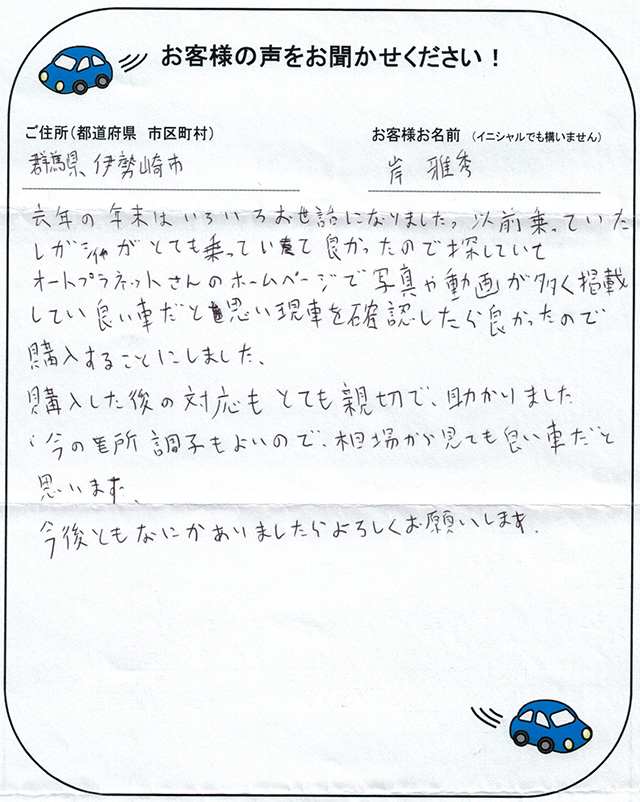 お客様の声をお聞かせください！
ご住所（都道府県 市区町村）
お客様お名前 （イニシャルでも構いません）
群馬県、伊勢崎市
岸 雅秀
去年の年末はいろいろお世話になりました。以前乗っていた
レガシィがとても乗っていて良かったので探していて
オートプラネットさんのホームページで写真や動画が多く掲載
してい良い車だと思い現車を確認したら良かったので
購入することにしました、
購入した後の対応もとても親切で、助かりました
、今の所調子もよいので、相場から見ても良い車だと
思います、
今後ともなにかありましたらよろしくお願いします.